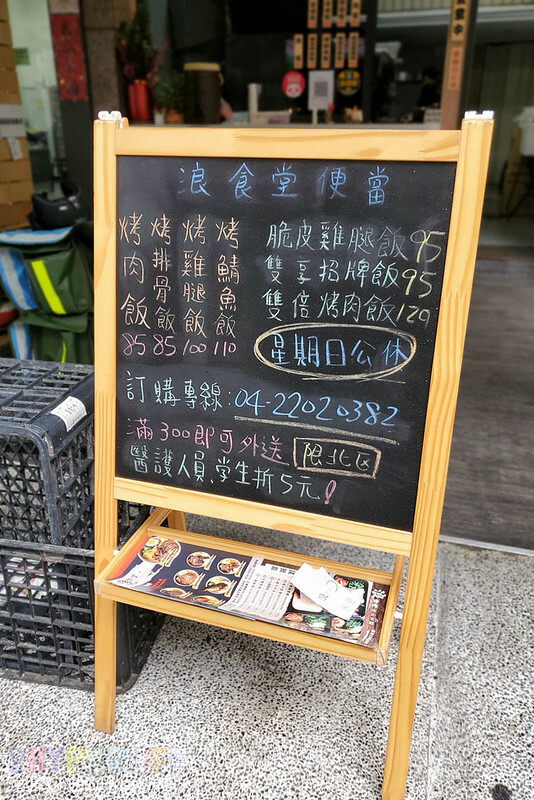 浪食堂便當
烤肉飯 85
烤排骨飯 85
烤雞腿飯 100
烤鯖魚飯 110
脆皮雞腿飯 95
雙享招牌飯 95
雙倍烤肉飯 129
星期日公休
訂購專線:04-22020382
滿300即可外送 限北区
醫護人員,學生折5元!